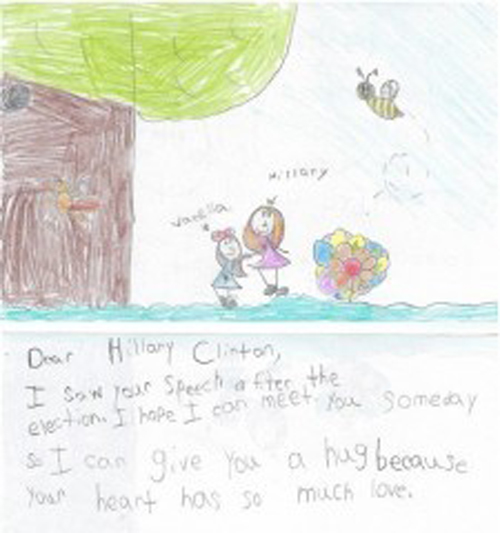 Hillary
Dear Hillary Clinton,
I saw your speech after the
election. I hope I can meet you someday
so I can give you a hug because
your heart has so much love.